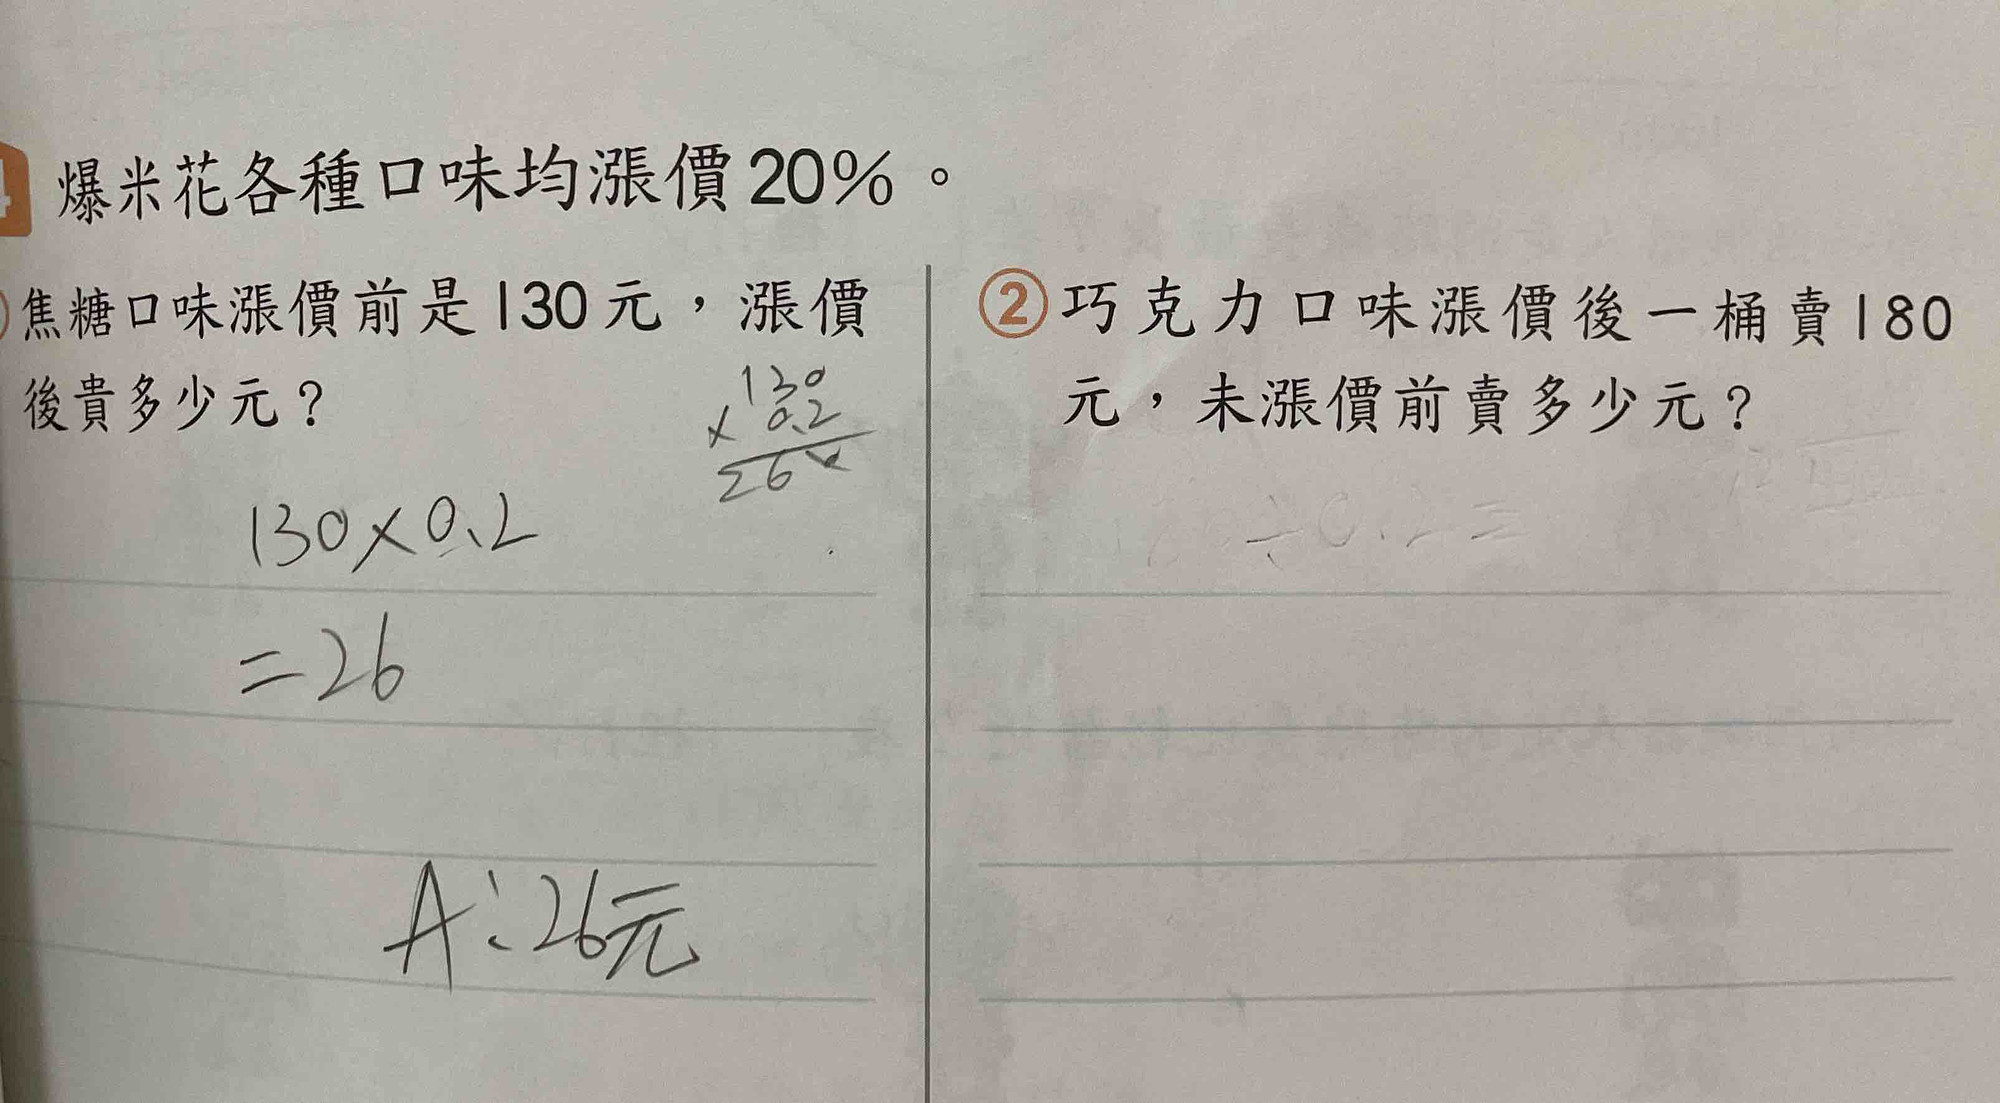 爆米花各種口味均漲價20%。
焦糖口味漲價前是130元，漲價
後貴多少元？
130
× 0.2
26
130×0.2
=26
A:26元
②巧克力口味漲價後一桶賣180
元，未漲價前賣多少元？
÷0.2=